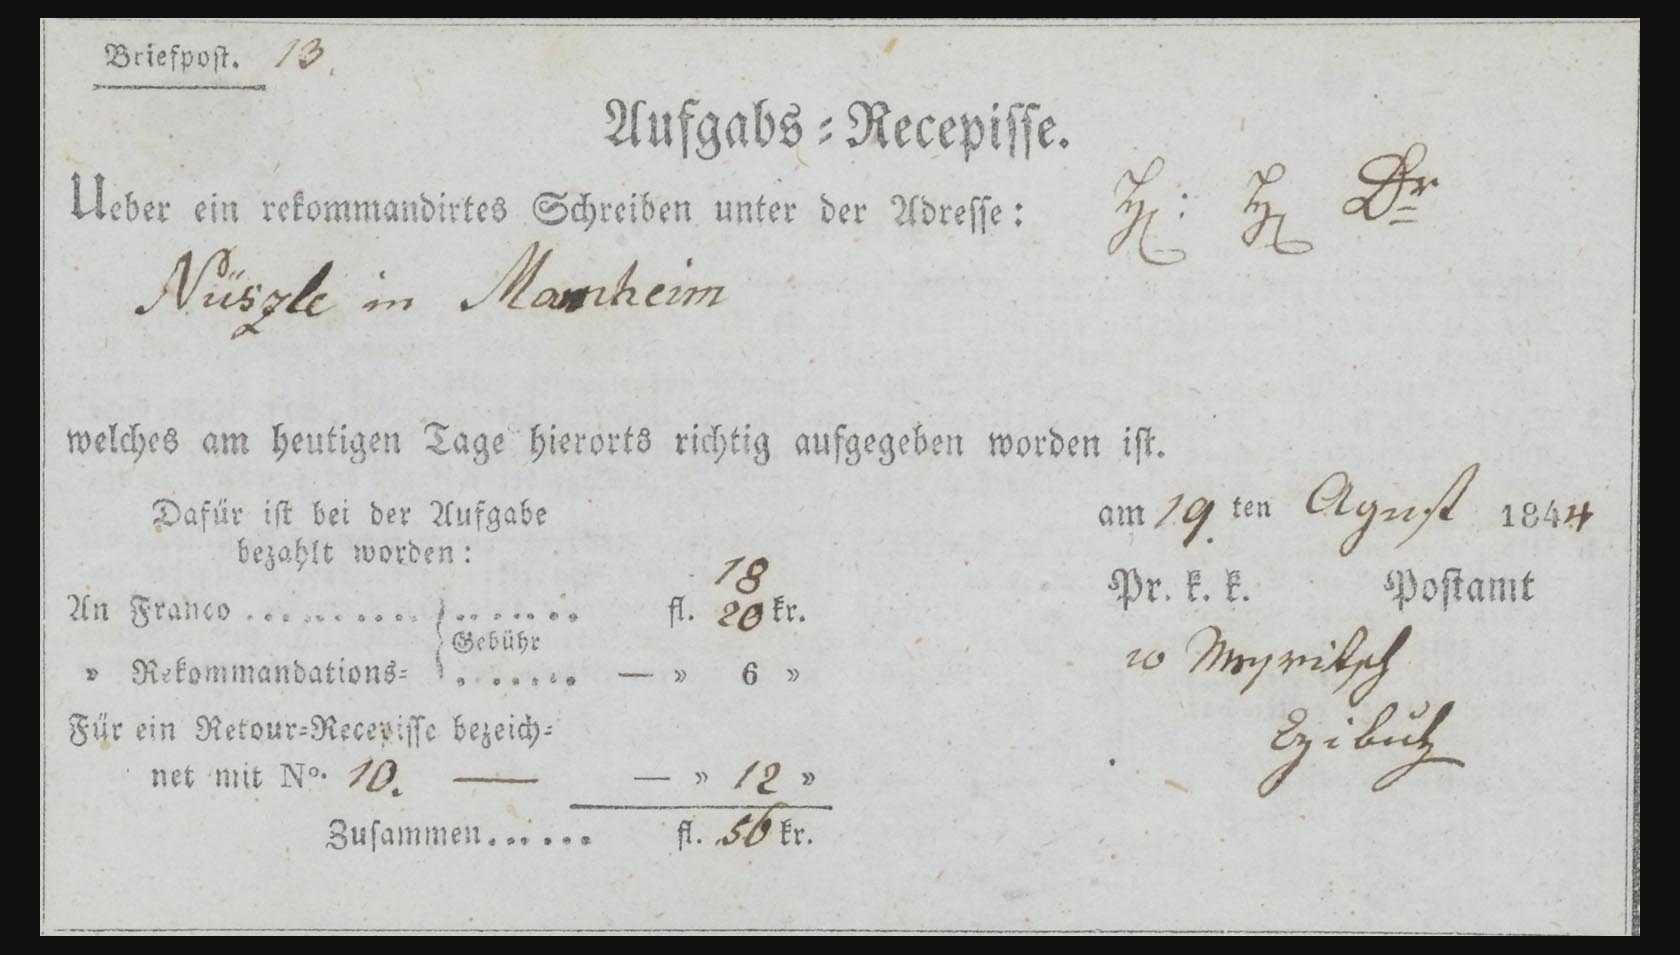 Briefpost. 13.
Aufgabs-Recepisse.
Ueber ein rekommandirtes Schreiben unter der Adresse: Dr
Nüszle in Manheim
welches am heutigen Tage hierorts richtig aufgegeben worden ist.
Dafür ist bei der Aufgabe
bezahlt worden:
am 19. ten Agust 1844
18
An Franco .......... ....... fl. 20 kr.
Gebühr
" Rekommandations- ....... — " 6 "
Pr. k. k. Postamt
Für ein Retour-Recepisse bezeich-
net mit No. 10. — — " 12 "
Zusammen...... fl. 56 kr.